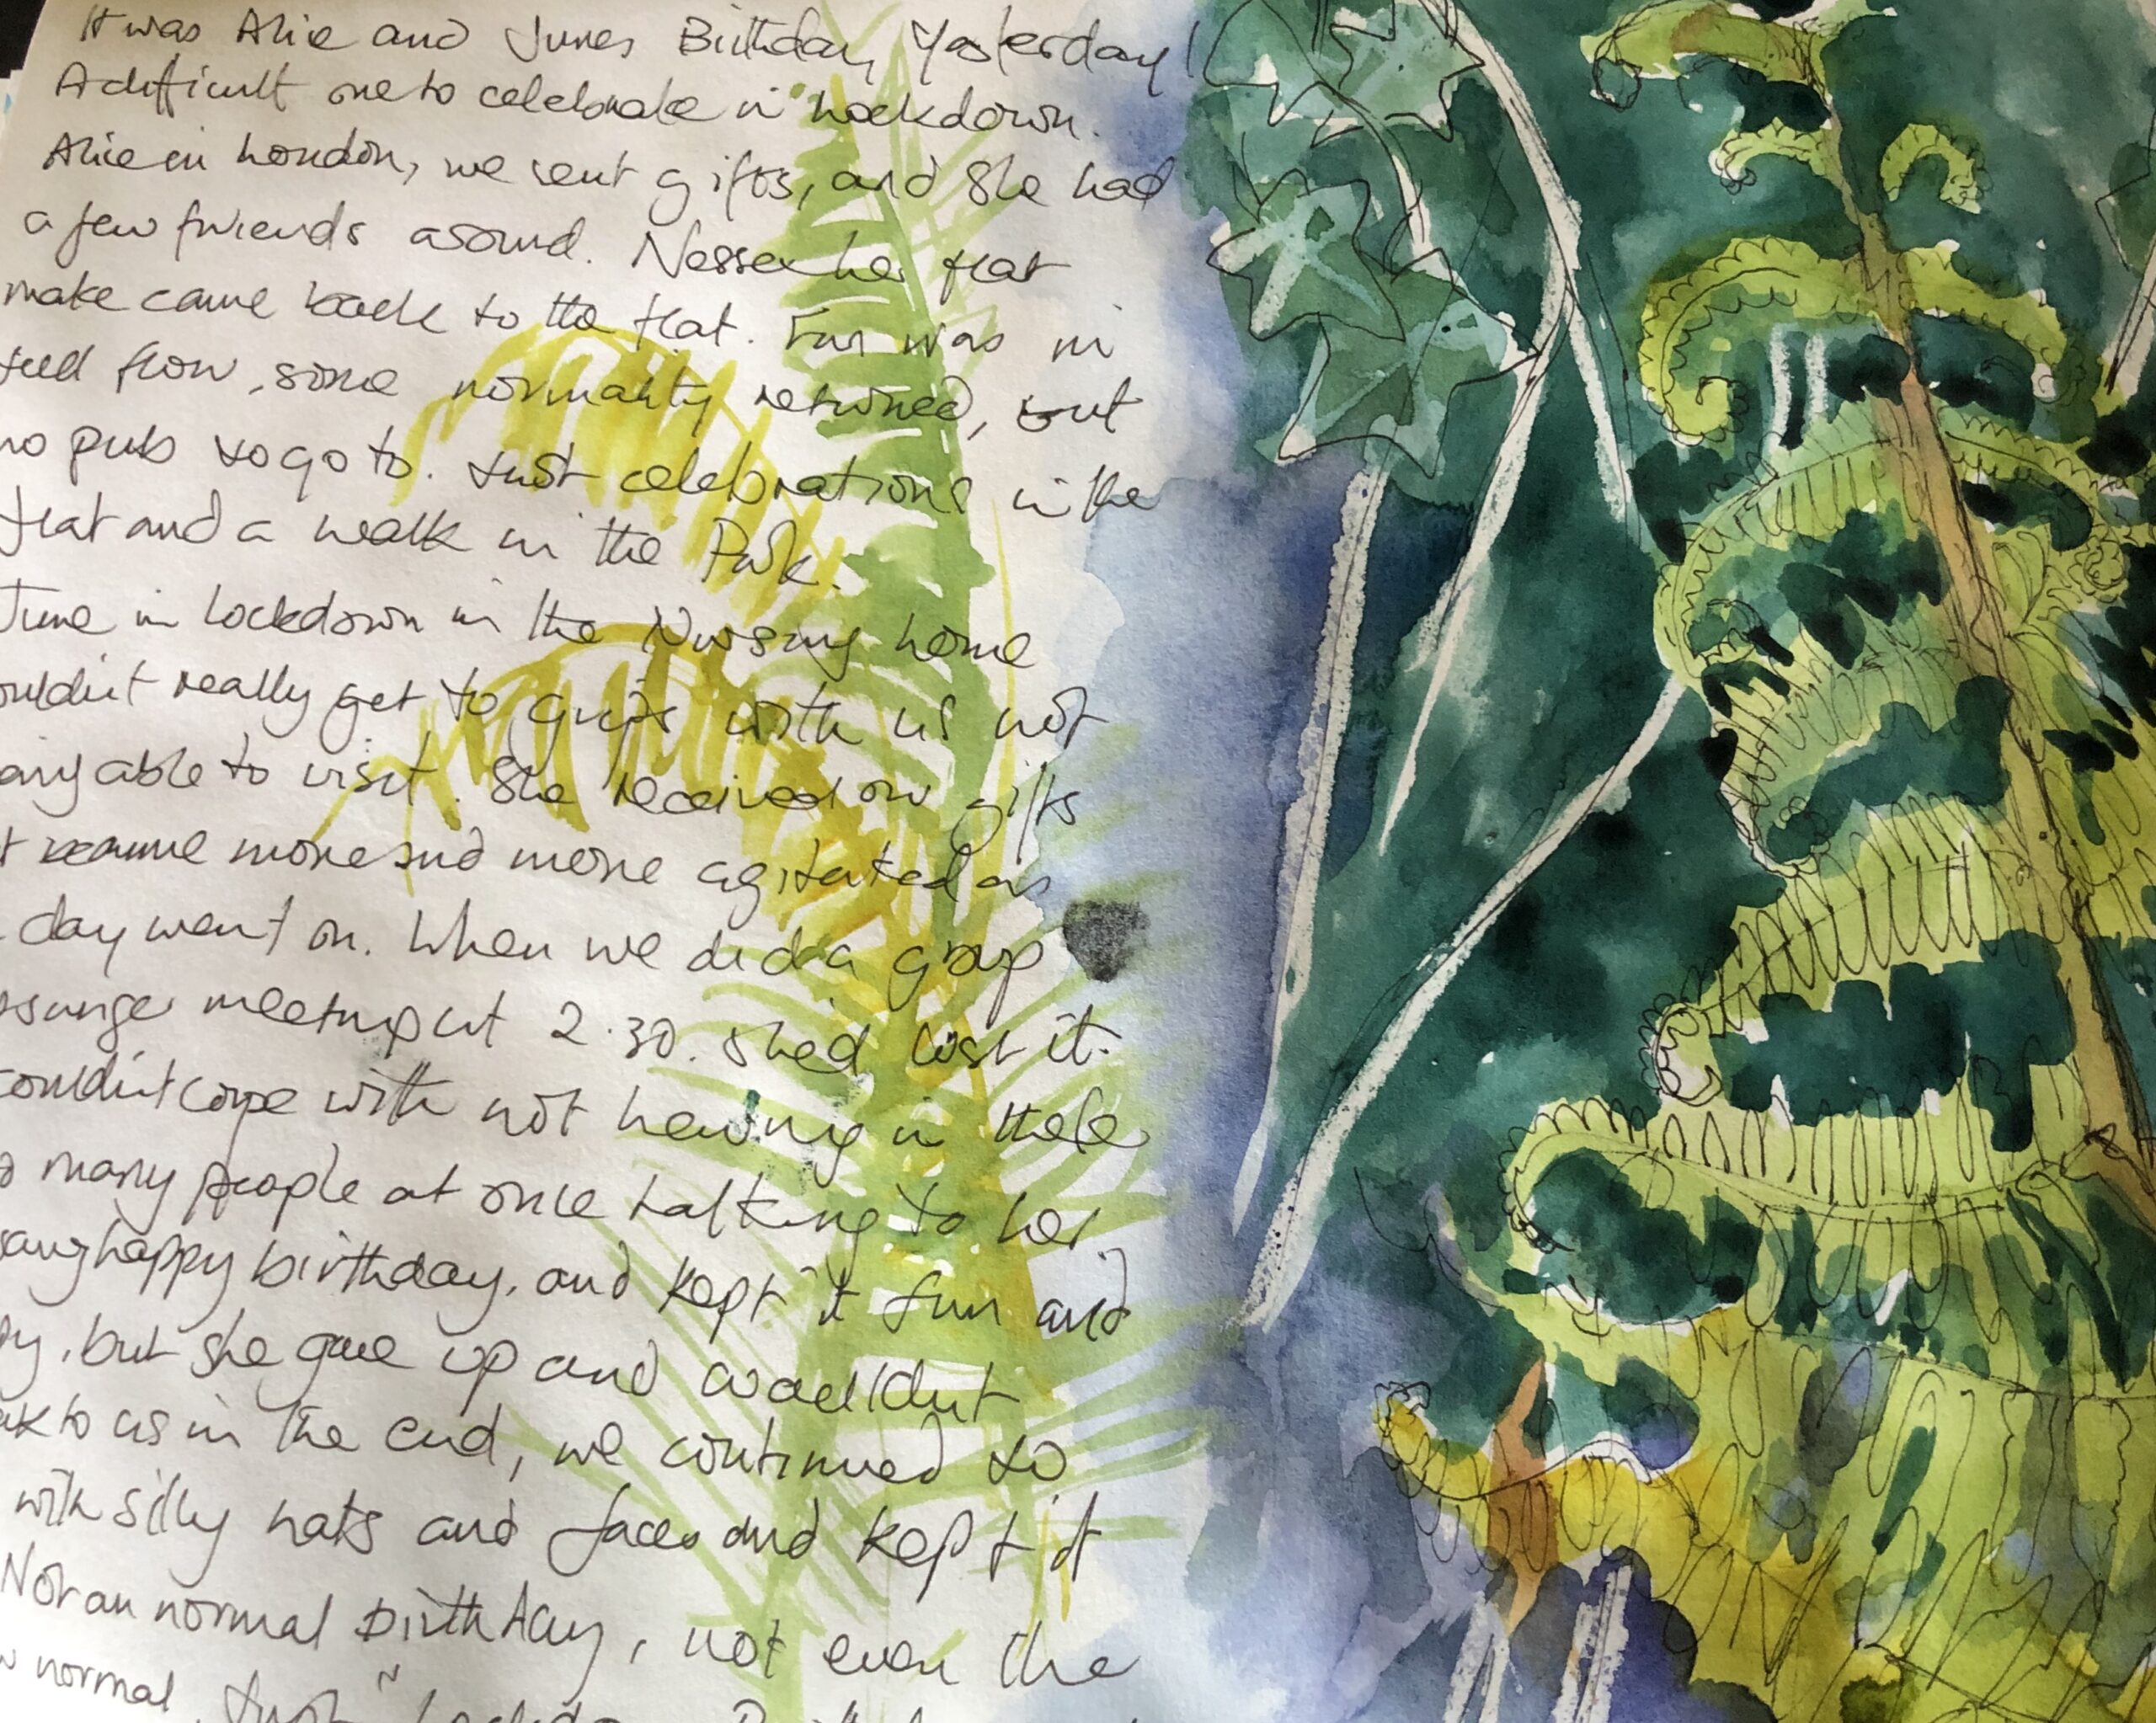 It was Alice and Junes Birthday Yesterday!
A difficult one to celebrate in Lockdown.
Alice in London, we sent gifts, and she had
a few friends around. Nessa her flat
mate came back to the flat. Fun was in
full flow, some normality returned, but
no pub to go to. Just celebrations in the
flat and a walk in the Park.
June in lockdown in the Nursing home
ouldnt really get to grips with us not
being able to visit. She received our gifts
t became more and more agitated as
day went on. When we did a group
meetup at 2.30. shed lost it.
couldnt cope with not hearing
o many people at once talking to her
sang happy birthday, and kept it fun and
but she gave up and wouldnt
to us in the end, we continued to
with silly hats and faces and kept it
Not an normal Birthday, not even the
w normal, Just